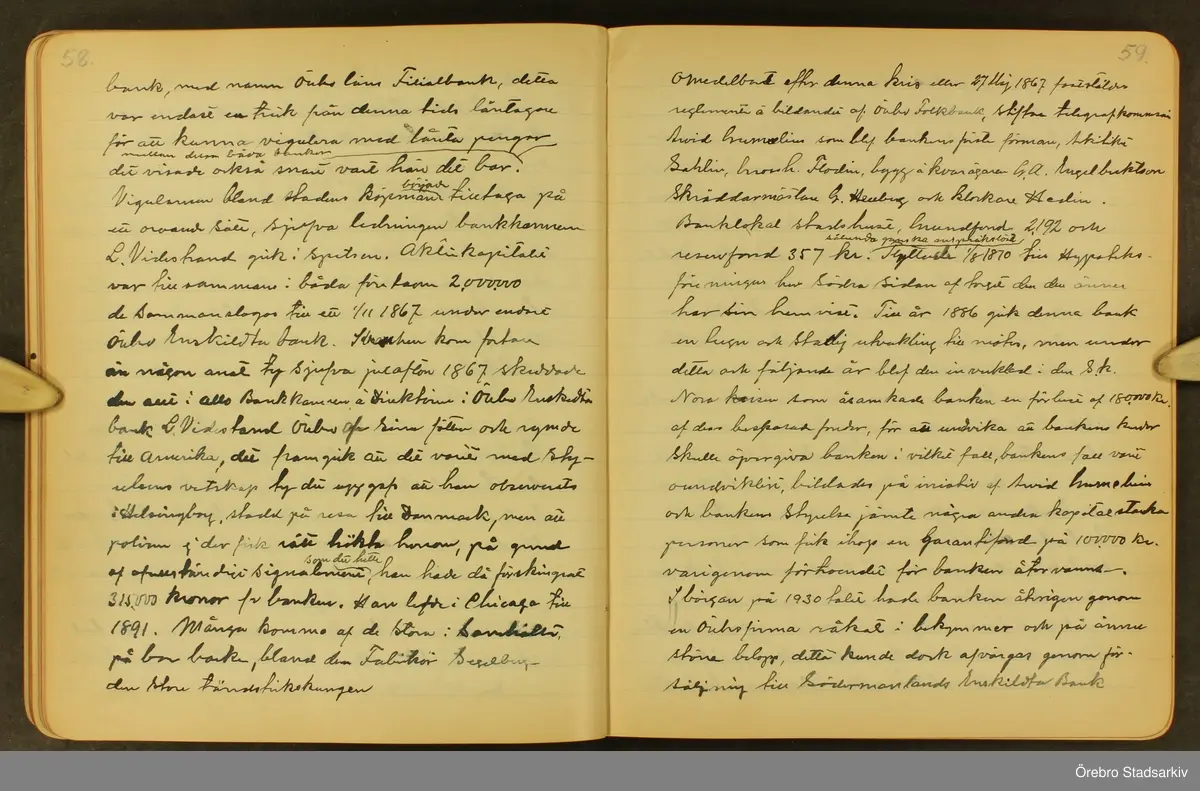 58.
bank, med namn Örebro läns Filialbank, detta
var endast en trick från denna tids låntagare
för att kunna vigulera med lånta pengar
mellan dessa båda banker
det visade också snart vart hän det bar.
Vigulansen bland stadens köpmän började tilltaga på
ett oroande sätt, sjelfva ledningen bankkamren
L. Videstrand gick i spetsen. Aktiekapitalet
var tillsammans i båda företagen 2,000,000
de sammanslogos till ett 1/11 1867 under endast
Örebro Enskildta bank. Kraschen kom fortare
än någon anat ty sjelfva julafton 1867 skuddade
den att i allo Bankkamren å Direktören i Örebro Enskildta
bank L. Videstrand Örebro af sina fötter och rymde
till Amerika, det framgick att det varit med Sty-
relsens vetskap ty det uppgafs att han observerats
i Helsingborg, stadd på resa till Danmark, men att
polisen ej der fick rätt häkta honom, på grund
af ofullständigt signalement, som det hette han hade då förskingrat
315,000 kronor fr banken. Han lefde i Chicago till
1891. Många kommo af de stora i Samhället,
på bar backe, bland dem Fabrikör
den store tändstickskungen
59.
Omedelbart efter denna kris eller 27 Maj 1867 fastställdes
reglemente å bildandet af Örebro Folkbank, stiftare telegrafkommisarie
Arvid Gumælius som blef bankens första förman,
Sahlin, grossh. Flodin, bygg å kvarnägaren G.A. Engelbrektson
Skräddarmästare G. Henberg och klockare Hedin.
Banklokal stadshuset, Grundfond 2,192 och
sålunda ganska anspråkslöst
reservfond 357 kr. Flyttade 1/8 1870 till Hypotheks-
föreningens hus Södra Sidan af torget der den ännu
har sin hemvist. Till år 1886 gick denna bank
en lugn och stadig utveckling till mötes, men under
detta och följande år blef den invecklad i den S.k.
Nora krisen som åsamkade banken en förlust af 180,000 kr.
af dess besparade fonder, för att undvika att bankens kunder
skulle öfvergiva banken i vilket fall, bankens fall varit
oundvikligt, bildades på initiativ af Arvid Gumælius
och bankens Styrelse jämte några andra kapitalstarka
personer som fick ihop en Garantifond på 100,000 kr.
varigenom förtroendet för banken återvanns.
I början på 1930 talet hade banken återigen genom
en Örebrofirma råkat i bekymmer och på ännu
större belopp, detta kunde dock afvärgas genom för-
säljning till Södermanlands Enskildta Bank
Örebro Stadsarkiv